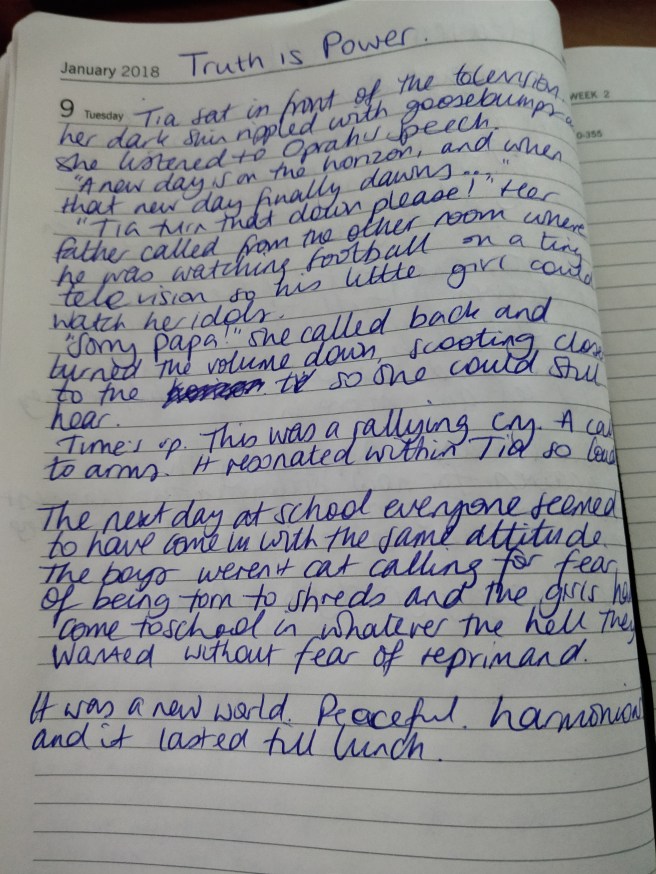 Truth is Power.
January 2018
WEEK 2
9 Tuesday Tia sat in front of the television.
her dark skin rippled with goosebumps a
0-355
she listened to Oprahs speech.
"A new day is on the horizon, and when
that new day finally dawns...."
"Tia turn that down please!" Her
father called from the other room where
he was watching football on a tiny
television so his little girl could
watch her idols.
"Sorry Papa!" she called back and
turned the volume down, scooting close
to the so she could still
hear.
Time's up. This was a rallying cry. A cal
to arms. It resonated within Tia so loud
The next day at school everyone seemed
to have come in with the same attitude.
The boys weren't cat calling for fear
of being torn to shreds and the girls ha
come to school in whatever the hell they
wanted without fear of reprimand.
It was a new world. Peaceful. harmoniou
and it lasted till lunch.